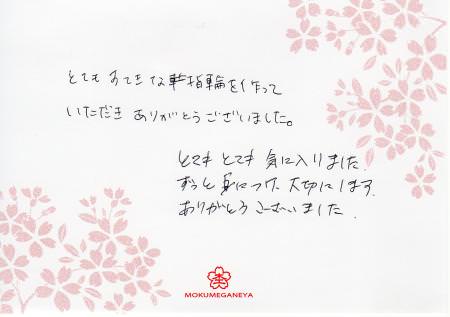 とてもすてきな指輪を作って
いただき ありがとうございました。
とても とても 気に入りました.
ずっと身につけ、大切にします.
ありがとうございました.
MOKUMEGANEYA